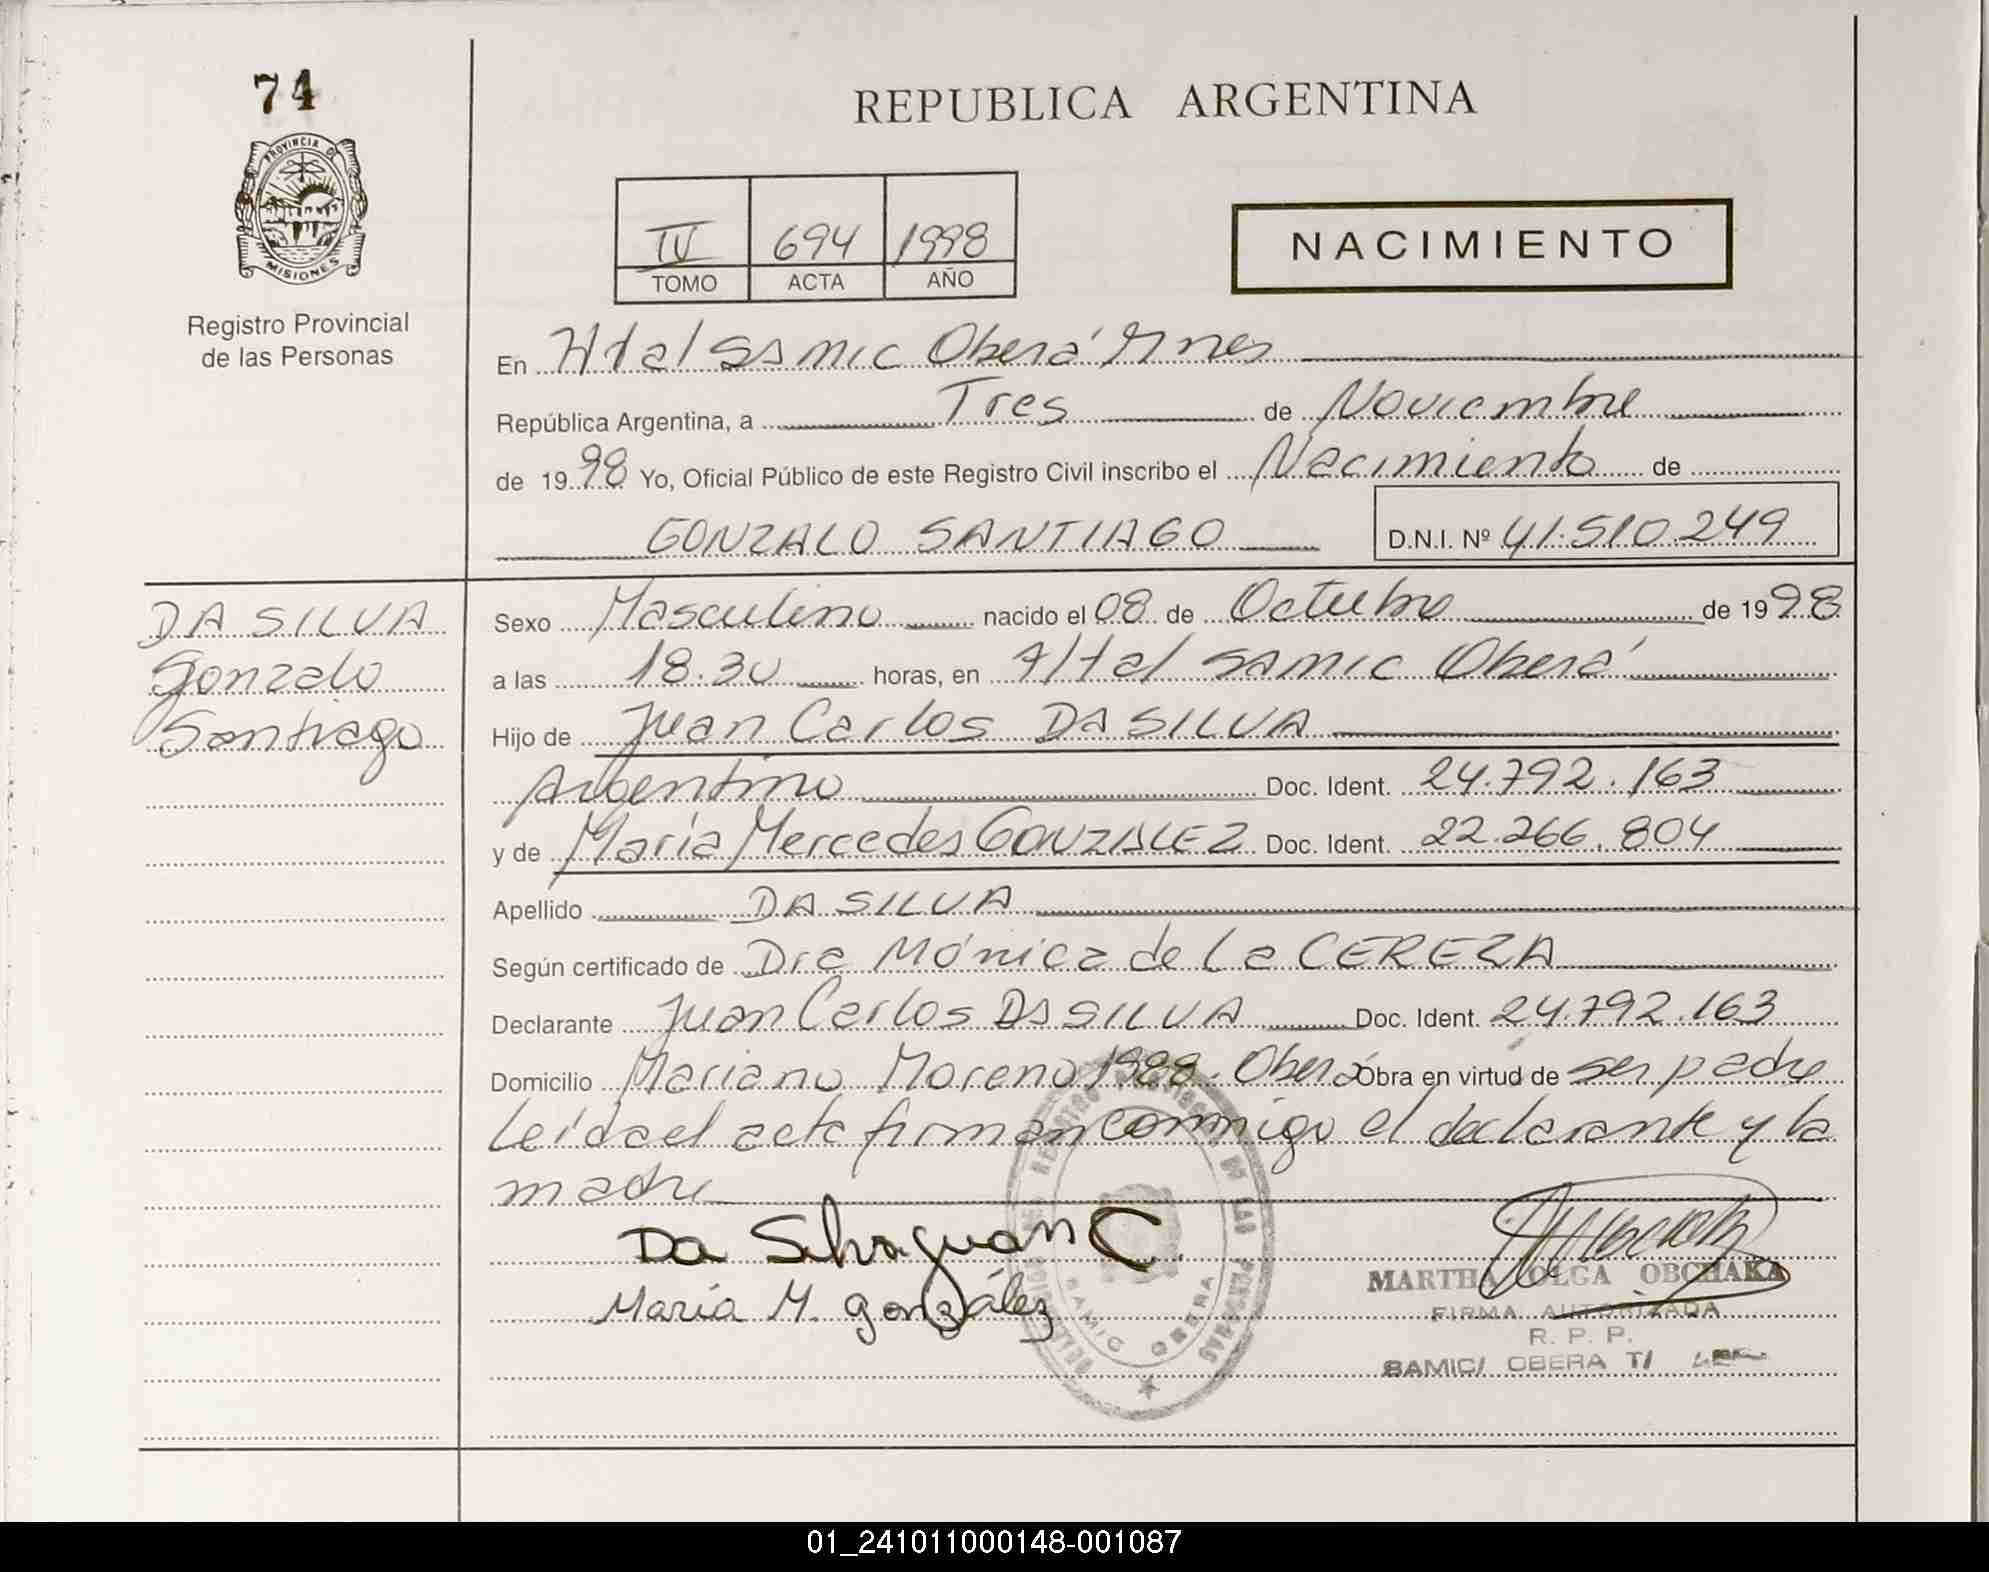 74
PROVINCIA DE
MISIONES
Registro Provincial
de las Personas
REPUBLICA ARGENTINA
IV 694 1998
TOMO ACTA AÑO
NACIMIENTO
En Htal SAMIC Oberá Mnes
República Argentina, a Tres de Noviembre
de 1998 Yo, Oficial Público de este Registro Civil inscribo el Nacimiento de
GONZALO SANTIAGO D.N.I. Nº 41.510.249
DA SILVA
Gonzalo
Santiago
Sexo Masculino nacido el 08 de Octubre de 1998
a las 18.30 horas, en Htal SAMIC Oberá
Hijo de Juan Carlos DA SILVA
Argentino Doc. Ident. 24.792.163
y de María Mercedes GONZALEZ Doc. Ident. 22.266.804
Apellido DA SILVA
Según certificado de Dra Mónica de La CEREZA
Declarante Juan Carlos DA SILVA Doc. Ident. 24.792.163
Domicilio Mariano Moreno 1988. Oberá Obra en virtud de ser padre
Leída el acta firman conmigo el declarante y la
madre
Da Silva Juan C.
María M. González
SAMIC OBERA
MARTHA OLGA OBCHAKA
FIRMA AUTORIZADA
R. P. P.
SAMIC/ OBERA T/
01_241011000148-001087